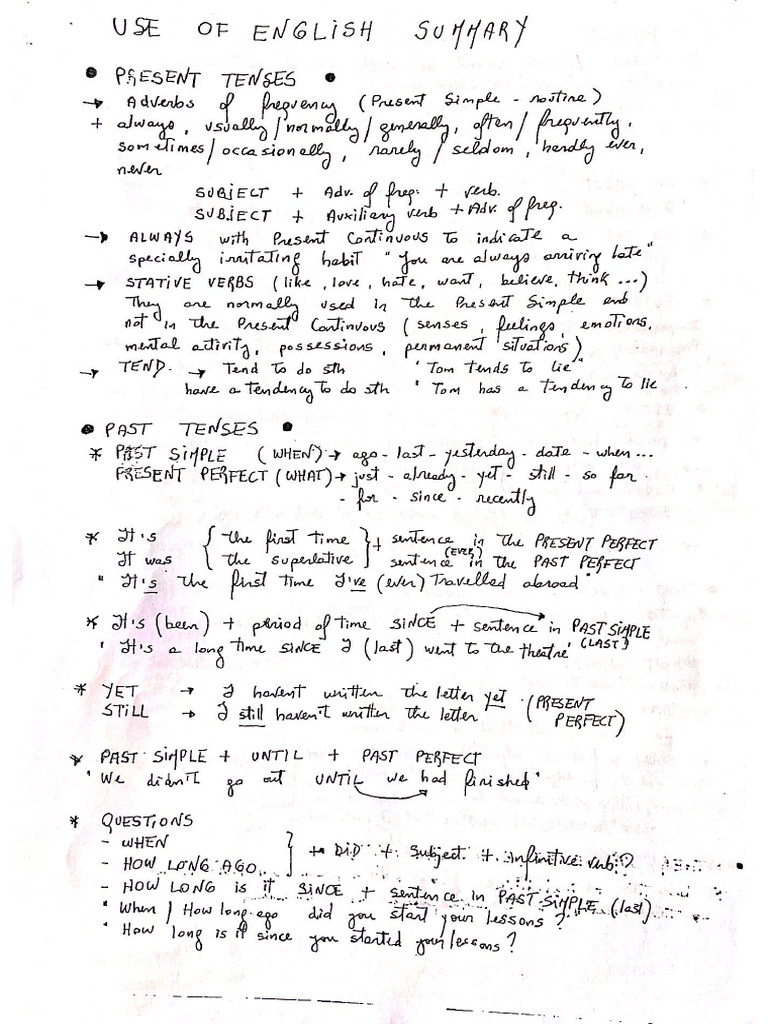 USE OF ENGLISH SUMMARY
• PRESENT TENSES •
→ Adverbs of frequency (Present Simple - routine)
+ always, usually/normally/generally, often/frequently,
sometimes/occasionally, rarely/seldom, hardly ever,
never
SUBJECT + Adv. of freq. + verb.
SUBJECT + Auxiliary verb + Adv. of freq.
→ ALWAYS with Present Continuous to indicate a
specially irritating habit "You are always arriving late"
→ STATIVE VERBS (like, love, hate, want, believe, think ...)
They are normally used in the Present Simple and
not in the Present Continuous (senses, feelings, emotions,
mental activity, possessions, permanent situations)
→ TEND. → Tend to do sth 'Tom tends to lie"
have a tendency to do sth ' Tom has a tendency to lie
• PAST TENSES •
* PAST SIMPLE (WHEN) → ago - last - yesterday - date - when...
PRESENT PERFECT (WHAT) → just - already - yet - still - so far -
- for - since - recently
* It's { the first time } + sentence in the PRESENT PERFECT
It was { the superlative } sentence (EVER) in the PAST PERFECT
" It's the first time I've (ever) travelled abroad"
* It's (been) + period of time SINCE + sentence in PAST SIMPLE
' It's a long time SINCE I (last) went to the theatre' (LAST)
* YET → I haven't written the letter yet (PRESENT
STILL → I still haven't written the letter PERFECT)
* PAST SIMPLE + UNTIL + PAST PERFECT
' We didn't go out UNTIL we had finished'
* QUESTIONS
- WHEN
- HOW LONG AGO } + DID + Subject + infinitive verb?
- HOW LONG is it SINCE + sentence in PAST SIMPLE (last)
' When / How long ago did you start your lessons?
' How long is it since you started your lessons?